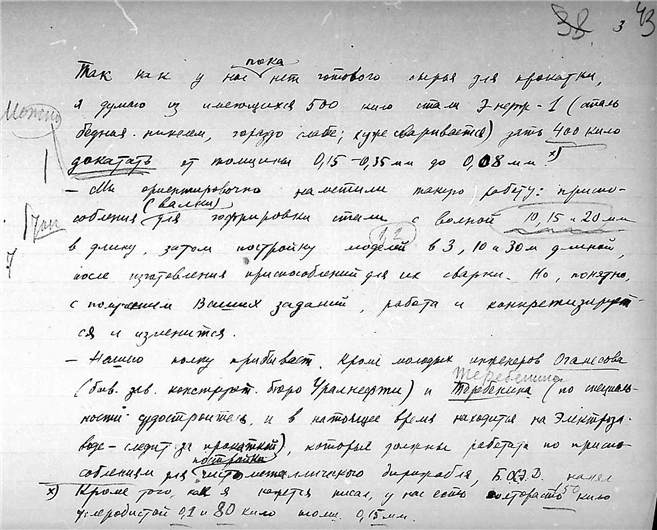 38 3 43
Так как у нас пока нет готового сырья для прокатки,
Можно
я думаю из имеющихся 500 кило стали Энерж-1 (сталь
бедная никелем, гораздо слабе; хуже сваривается) дать 400 кило
докатать от толщины 0,15-0,35 мм до 0,08 мм x)
– Мы ориентировочно наметили такую работу: приспо-
собления (валки) для гофрировки стали с волной 10, 15 и 20 мм
в длину, затем постройку моделей в 3, 10 и 30 м длиной,
после изготовления приспособлений для их сварки. Но, понятно,
с получением Ваших заданий, работа и конкретизирует-
ся и изменится.
– Нашего полку прибывает. Кроме молодых инженеров Оганесова
Теребенина
(быв. зав. конструкт. бюро Уралнефти) и Теребенина (по специаль-
ности судостроитель, и в настоящее время находится на Электроза-
воде – следит за прокаткой), которые должны работать по приспо-
соблениям для постройки чисто металлического дирижабля, Б.О.Э.Д.
x) Кроме того, как я кажется писал, у нас есть полтораста 150 кило
углеродистой 0,1 и 80 кило толщ. 0,15 мм.